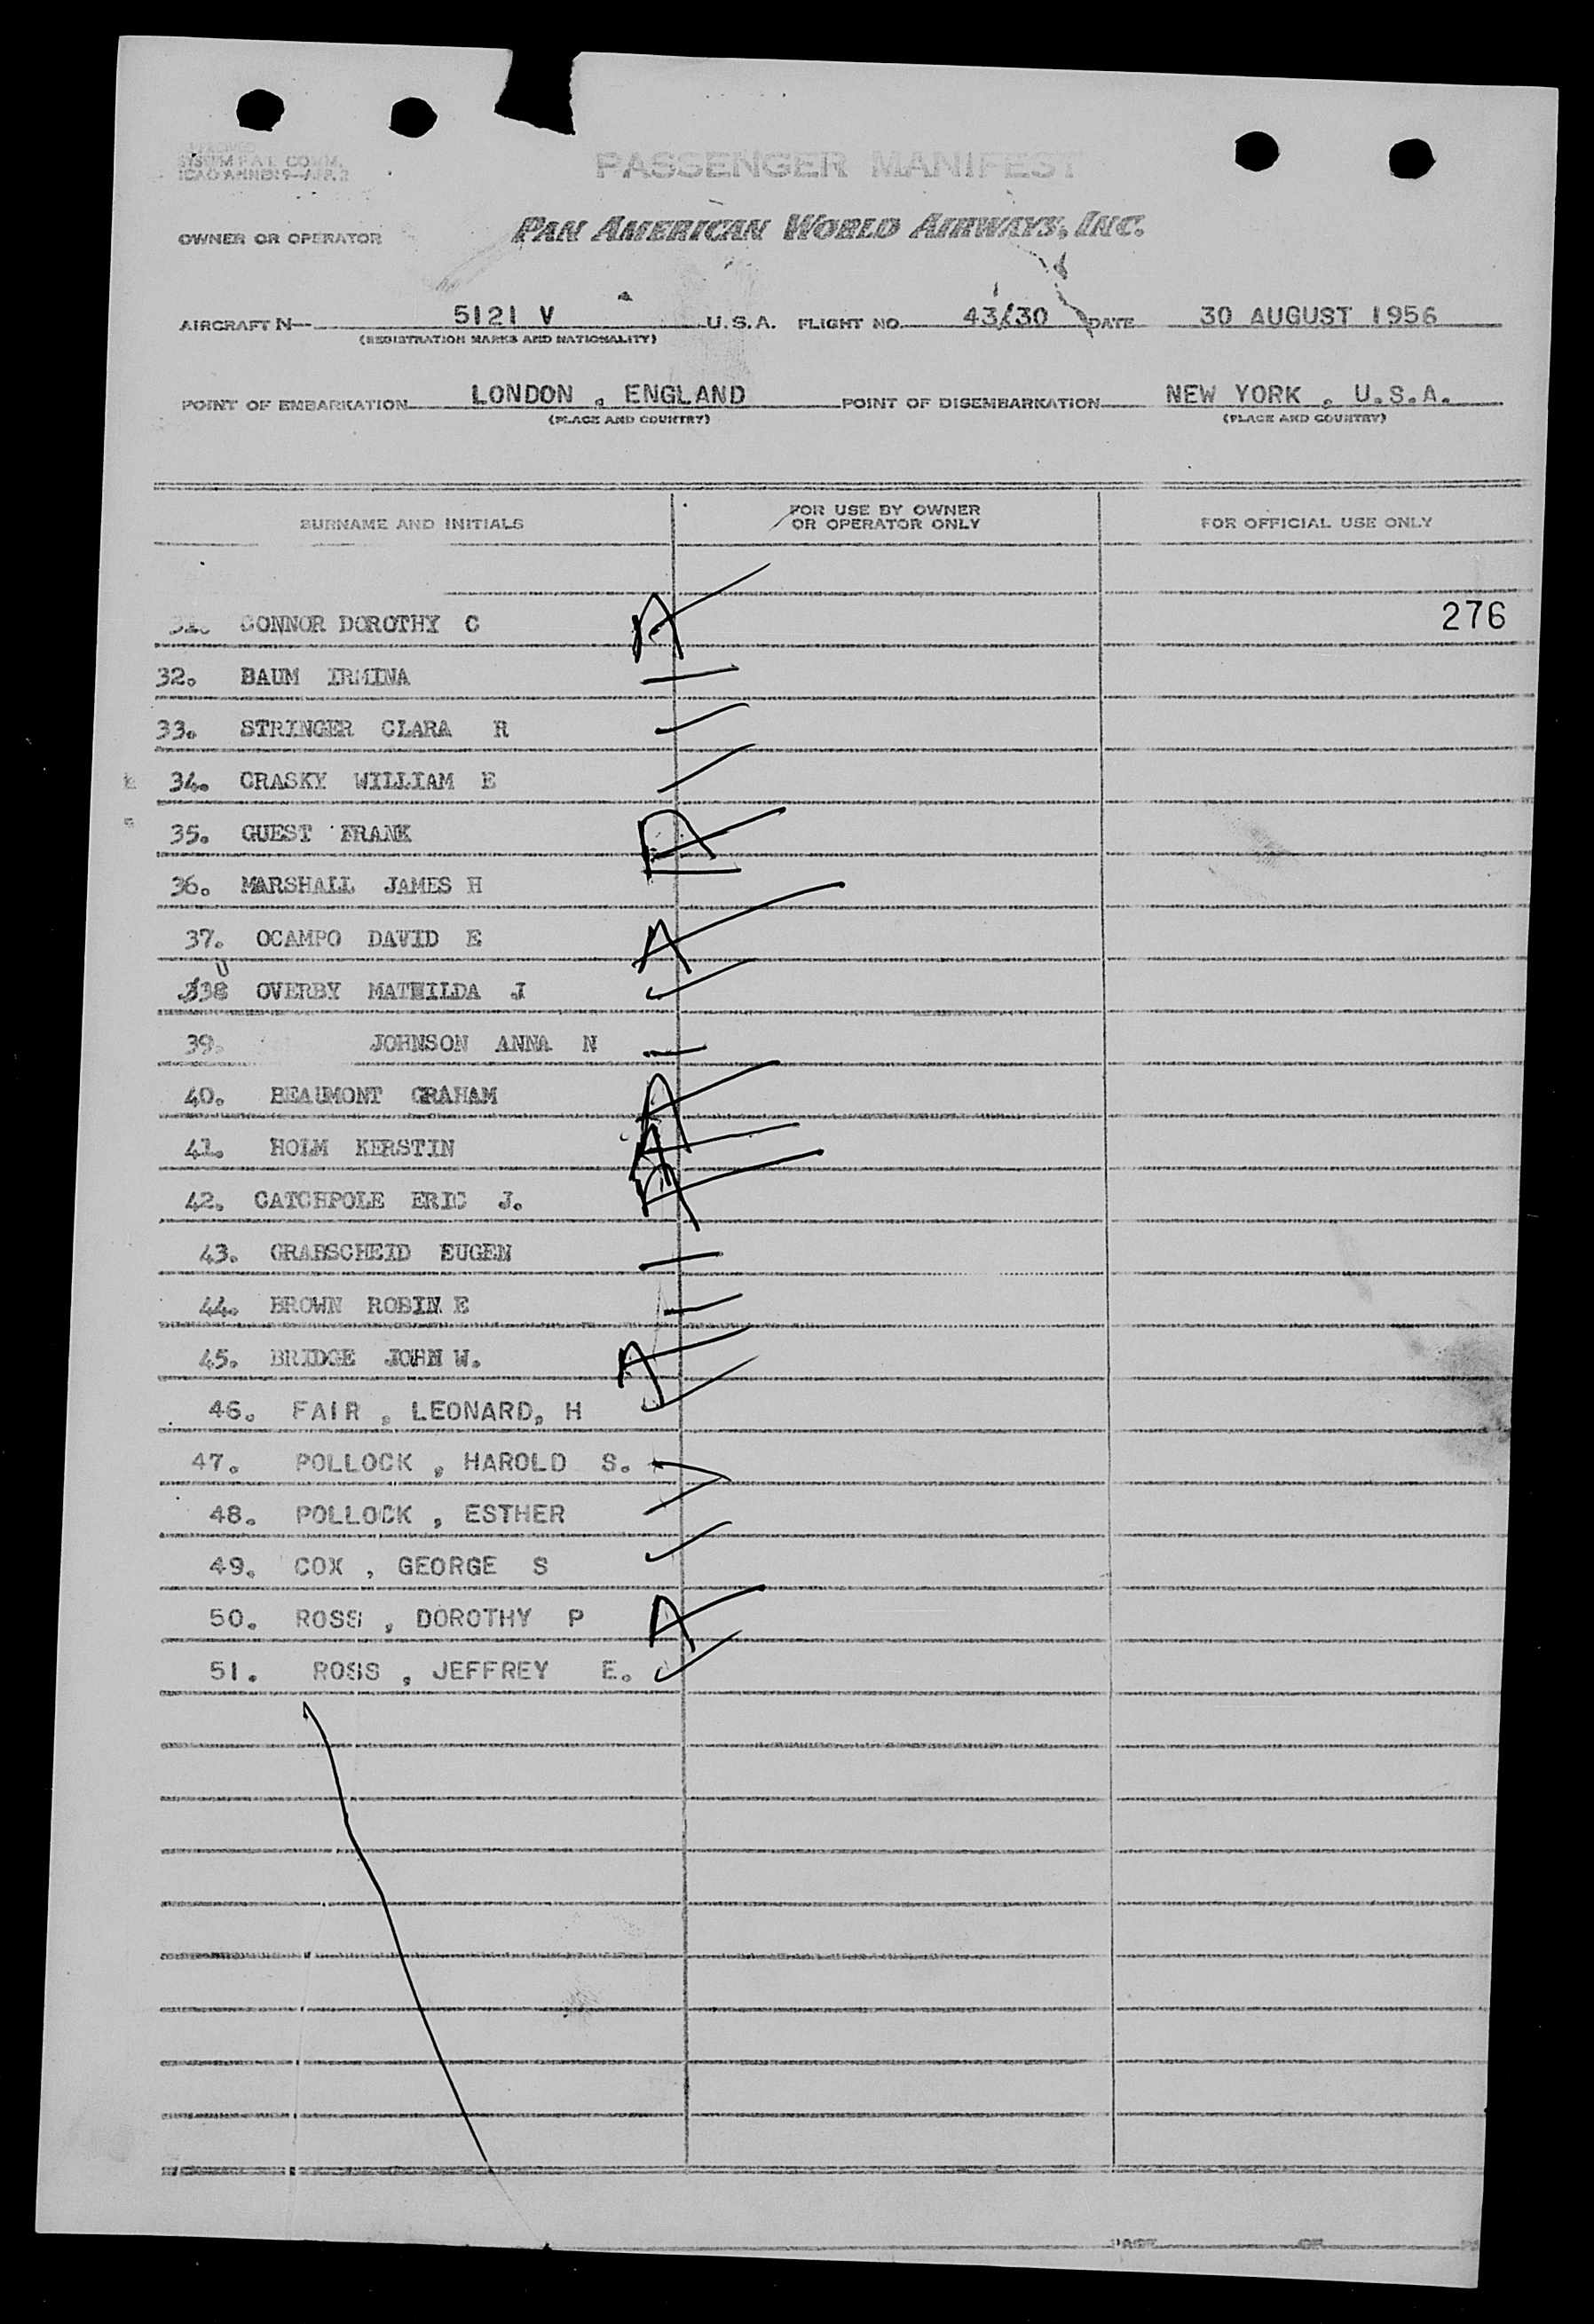 SYSTEM P.A.I. COMM.
ICAO ANNEX 9—APP. 2
PASSENGER MANIFEST
OWNER OR OPERATOR PAN AMERICAN WORLD AIRWAYS, INC.
AIRCRAFT N— 5121 V U.S.A. FLIGHT NO. 43/30 DATE 30 AUGUST 1956
(REGISTRATION MARKS AND NATIONALITY)
POINT OF EMBARKATION LONDON , ENGLAND POINT OF DISEMBARKATION NEW YORK , U.S.A.
(PLACE AND COUNTRY) (PLACE AND COUNTRY)
SURNAME AND INITIALS FOR USE BY OWNER OR OPERATOR ONLY FOR OFFICIAL USE ONLY
31. CONNOR DOROTHY C A 276
32. BAUM IRMINA
33. STRINGER CLARA R
34. CRASKY WILLIAM E
35. GUEST FRANK A
36. MARSHALL JAMES H
37. OCAMPO DAVID E A
38 OVERBY MATHILDA J
39. JOHNSON ANNA N
40. BEAUMONT GRAHAM A
41. HOLM KERSTIN A
42. CATCHPOLE ERIC J. A
43. GRABSCHEID EUGEN
44. BROWN ROBIN E
45. BRIDGE JOHN W. A
46. FAIR , LEONARD, H
47. POLLOCK , HAROLD S.
48. POLLOCK , ESTHER
49. COX , GEORGE S
50. ROSS , DOROTHY P A
51. ROSS , JEFFREY E.
PAGE OF